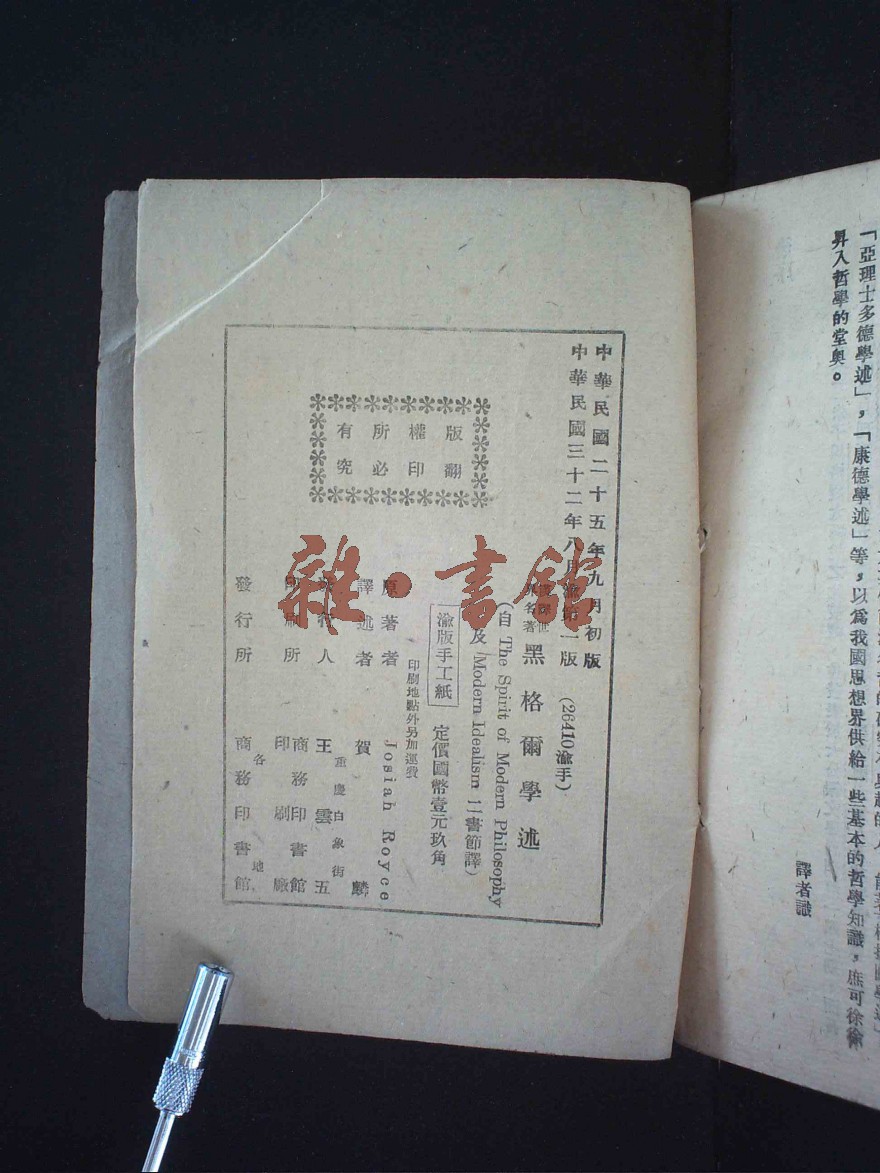 中華民國二十五年九月初版
中華民國三十二年八月渝第一版
(26410渝手)
名著
黑格爾學述
(自 The Spirit of Modern Philosophy
及 Modern Idealism 二書節譯)
渝版手工紙
定價國幣壹元玖角
印刷地點外另加運費
原著者 Josiah Royce
譯述者 賀麟
發行人 王雲五
重慶白象街
印刷所 商務印書館
印刷廠
發行所 商務印書館
各地
版權所有
翻印必究
雜·書館
「亞理士多德學述」,「康德學述」等,以為我國思想界供給一些基本的哲學知識,庶可徐徐
昇入哲學的堂奧。
譯者識